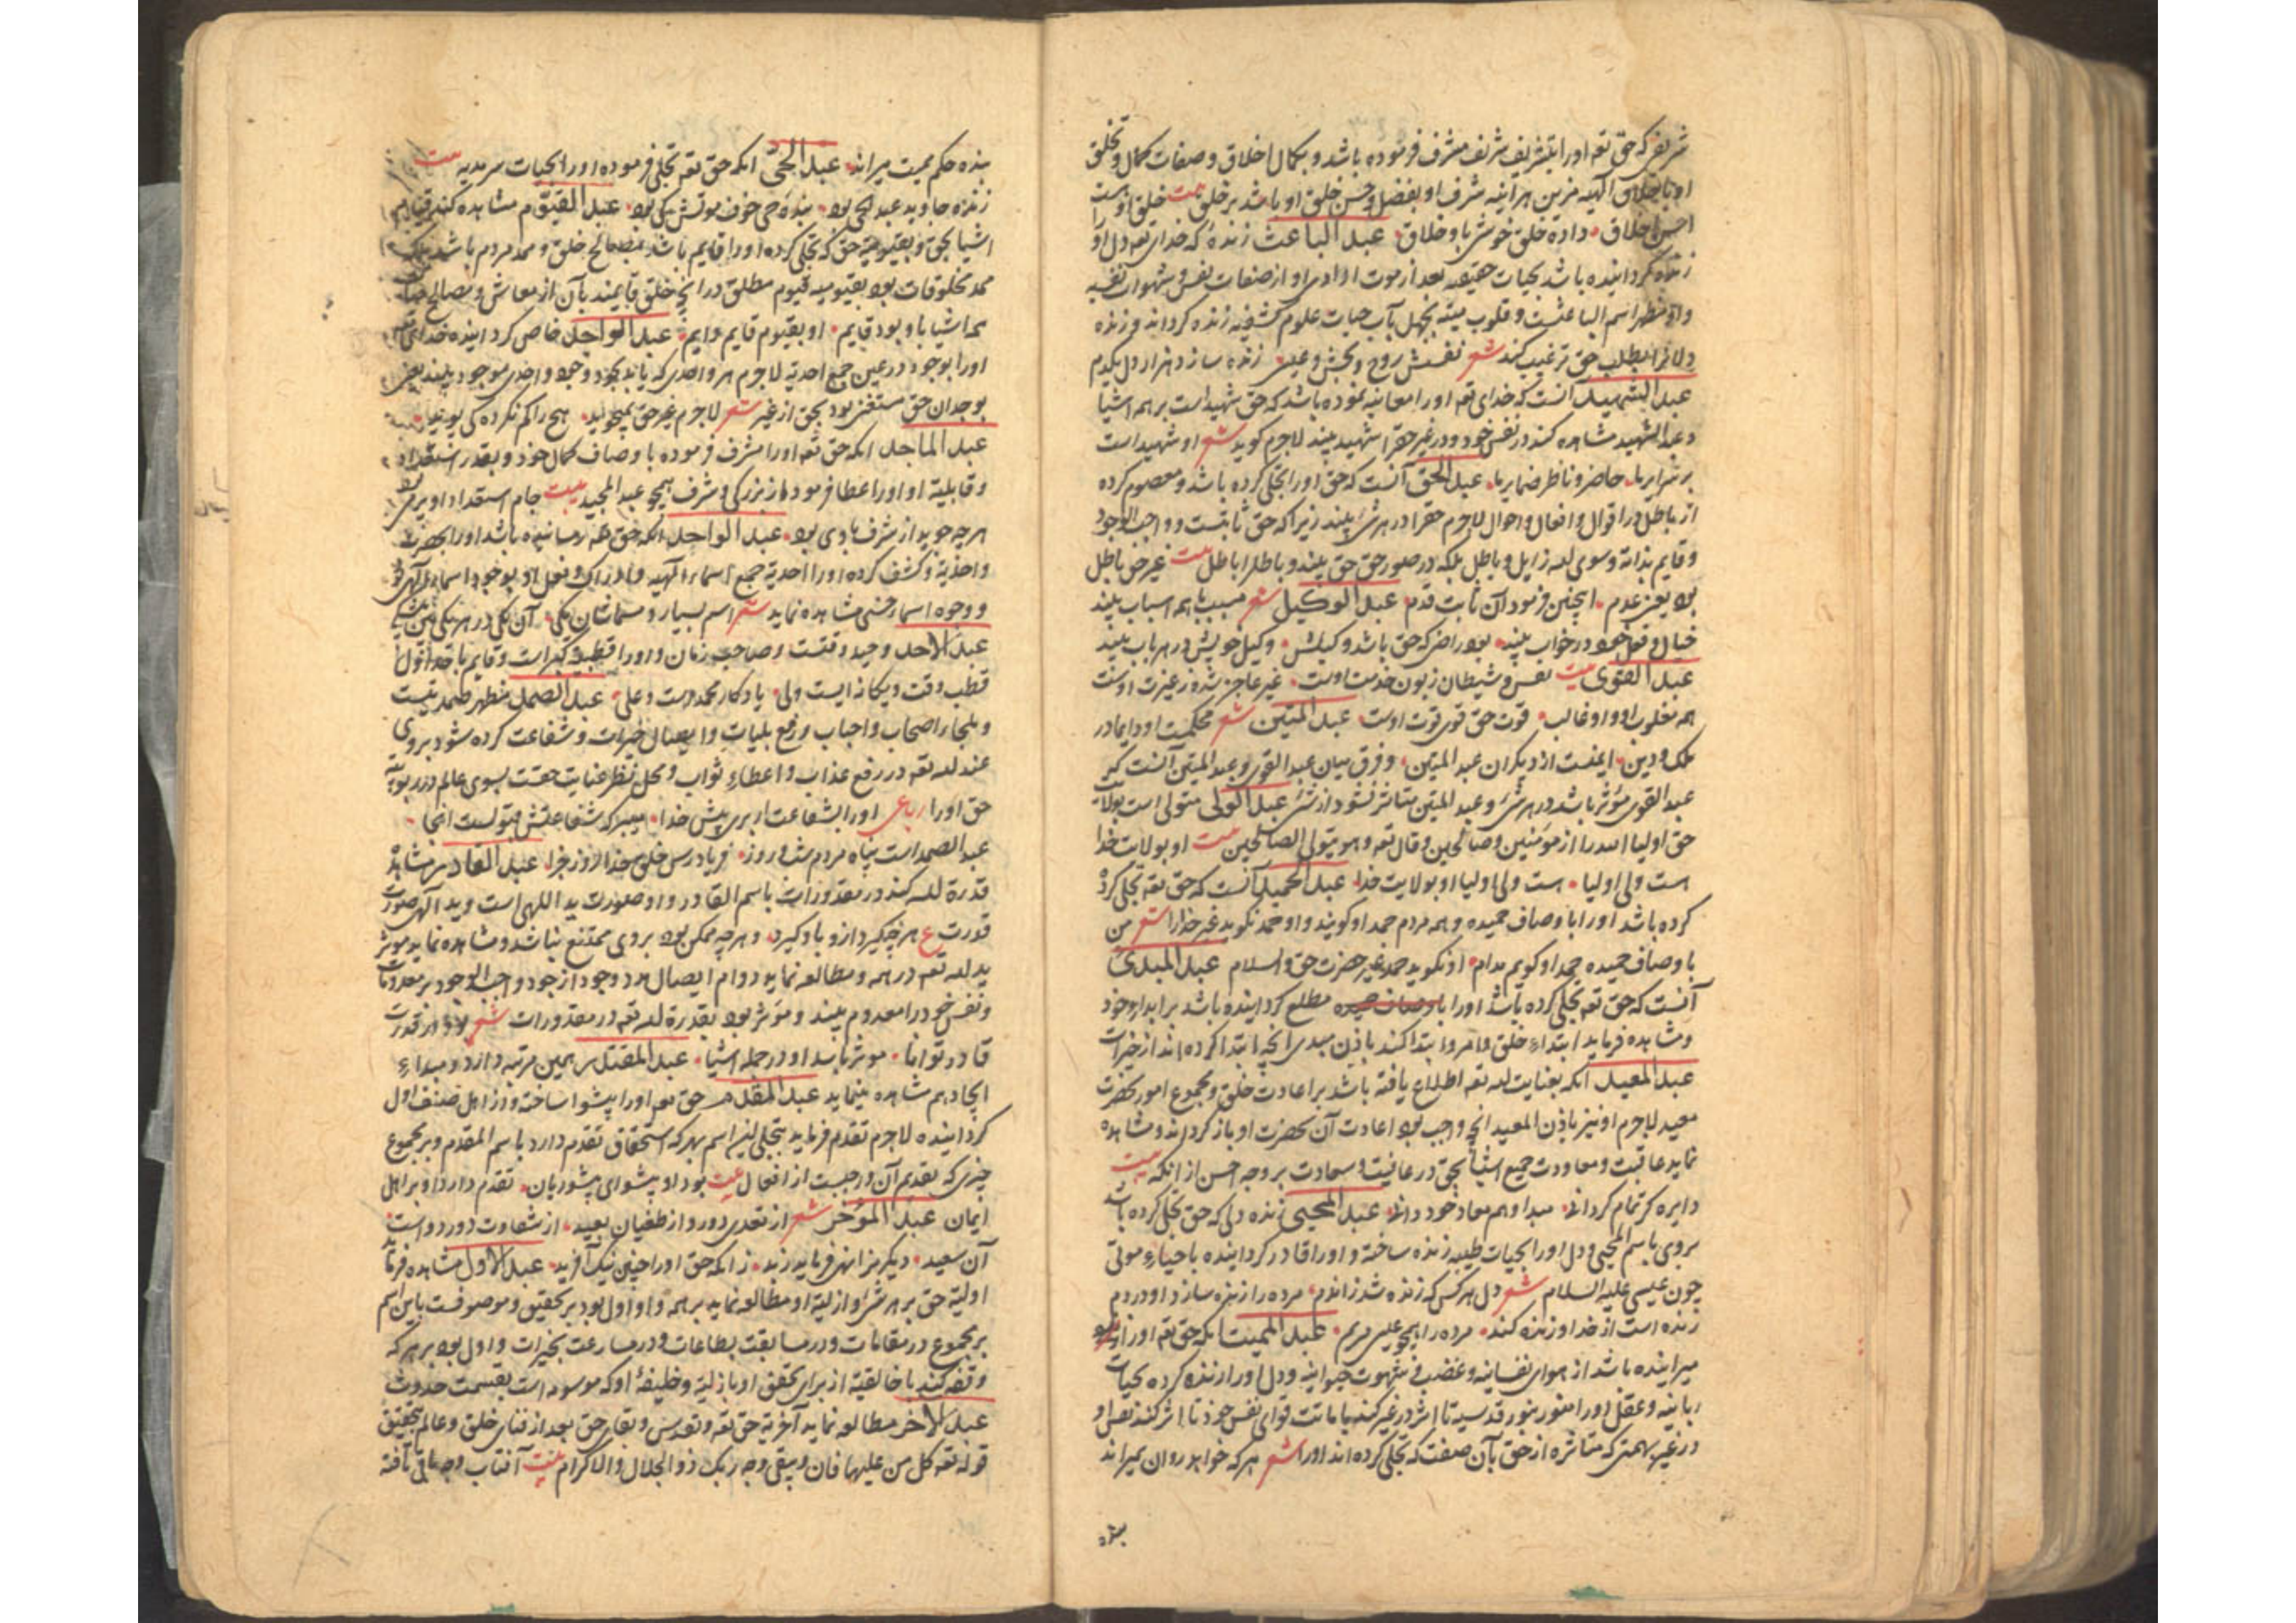 شریف که حق تعه اورا بتشریف شریف مشرف فرموده باشد و بکمال اخلاق و صفات کمال و تخلق
او باخلاق الهیه مزین هر آینه شرف او بفضل و حسن خلق او باشد بر خلق بیت خلق اوست
احسن اخلاق داده خلق خوش با و خلاق عبد الباعث زنده که خدای تعه دل اورا
زنده گردانیده باشد بحیات حقیقیه بعد از موت ارادی او از صفات نفس و شهوات نفسیه
و او مظهر اسم الباعث است و قلوب میته بجهل بآب حیات علوم کشفیه زنده گرداند و زنده
دلانرا بطلب حق ترغیب کند شعر نفسش روح و بخشش وعلی زنده سازد هزار دل بیکدم
عبد الشهید آنست که خدای تعه اورا معاینه نموده باشد که حق شهید است بر همه اشیا
و عبد الشهید مشاهده کند در نفس خود و در غیر حقرا شهید بیند لاجرم گوید شعر او شهید است
بر سرایر ما حاضر و ناظر ضمایر ما عبد الحق آنست که حق اورا تجلی کرده باشد و معصوم کرده
از باطل در اقوال و افعال و احوال لاجرم حقرا در هر شئ بیند زیرا که حق ثابتست و واجب الوجود
و قایم بذاته و سوی الله زایل و باطل بلکه در صور حق حق بیند و باطلرا باطل بیت غیر حق باطل
بود یعنی عدم اینچنین فرمود آن ثابت قدم عبد الوکیل شعر مسبب با همه اسباب بیند
خیال و فعل خود در خواب بیند بود راضی که حق باشد وکیلش وکیل خویش در هر باب بیند
عبد القوی بیت نفس و شیطان زبون خدمت اوست غیر عاجز شد و ز غیرت اوست
همه مغلوب او و او غالب قوت حق قوی قوت اوست عبد المتین شعر محکمست او دایما در
ملک و دین ایمنست از دیگران عبد المتین و فرق میان عبد القوی و عبد المتین آنست که
عبد القوی مؤثر باشد در هر شئ و عبد المتین متاثر نشود از شئ عبد الولی متولی است بولایت
حق اولیا الله را از مؤمنین و صالحین و قال تعه و هو یتولی الصالحین بیت او بولایت خدا
است ولی اولیا است ولی اولیا او بولایت خدا عبد الحمید آنست که حق تعه تجلی کرده
کرده باشد اورا با وصاف حمیده و همه مردم حمد او گویند و او حمد نگوید غیر خدارا شعر من
با وصاف حمیده حمد او گویم مدام او نگوید حمد غیر حضرت حق والسلام عبد المبدئ
آنست که حق تعه تجلی کرده باشد اورا باوصاف حمیده مطلع گردانیده باشد بر ابداء خود
و مشاهده فرماید ابتداء خلق و امر و ابتدا کند باذن مبدی انچه ابتدا کرده اند از خیرات
عبد المعید آنکه بعنایت الله تعه اطلاع یافته باشد بر اعادت خلق و مجموع امور بحضرت
معید لاجرم او نیز باذن المعید انچه واجب بود اعادت آن بحضرت او باز گرداند و مشاهده
نماید عاقبت و معاودت جمیع اشیا بحق در عافیت و سعادت بر وجه احسن از آنکه بیت
دایره کر تمام گردانی مبدا و هم معاد خود دانی عبد المحیی زنده دلی که حق تجلی کرده باشد
بروی باسم المحیی و دل اورا بحیات طیبه زنده ساخته و اورا قادر گردانیده باحیاء موتی
چون عیسی علیه السلام شعر دل هر کس که زنده شد ز اندم مرده را زنده سازد او در دم
زنده است از خدا و زنده کند مرده را همچو عیسی مریم عبد الممیت آنکه حق تعه اورا از
میرانیده باشد از هوای نفسانیه و غضب و شهوت حیوانیه و دل اورا زنده کرده بحیات
ربانیه و عقل اورا منور بنور قدسیه تا اثر در غیر کند باماتت قوای نفس خود تا اثر کند نفس او
در غیر بهمتی که متاثره از حق بآن صفت که تجلی کرده اند اورا شعر هر که خواهد روان بمیراند
بنده
بنده حکم ممیت میراند عبد الحی آنکه حق تعه تجلی فرموده اورا بحیات سرمدیه بیت
زنده جاوید عبد الحی بود بنده حی خوف موتش کی بود عبد القیوم مشاهده کند قیام
اشیا بحق و بقیومیه حق که تجلی کرده اورا قایم باشد بمصالح خلق و ممد مردم باشد بلکه
ممد مخلوقات بود بقیومیه قیوم مطلق در انچه خلق قایمند بآن از معاش و مصالح حیات
همه اشیا باو بود قایم او بقیوم قایم دایم عبد الواجد خاص گردانیده خدای تعه
اورا بوجود در عین جمع احدیه لاجرم هر واحدی که یابد بجود وجود واحدی موجود بیند یعنی
بوجدان حق مستغنی بود بحق از غیر شعر لاجرم غیر حق نمیجوید هیچ را کم نکرده کی پوید
عبد الماجد آنکه حق تعه اورا مشرف فرموده با وصاف کمال خود و بقدر استعداد
و قابلیه او اورا عطا فرموده از بزرگی و شرف همچو عبد المجید بیت جام استعداد او پر می بود
هرچه جوید از شرف با وی بود عبد الواحد آنکه حق تعه رسانیده باشد اورا بحضرت
واحدیه و کشف کرده اورا احدیه جمیع اسماء الهیه و ادراک و فعل او بوجود اسماء الهی
و وجوه اسماء حسنی مشاهده نماید شعر اسم بسیار و مسماشان یکی آن یکی در هر یکی بین بیشکی
عبد الاحد وحید وقتست و صاحب زمان و اورا قطبیه کبراست و قایم باحد اول
قطب وقت و یگانه ایست ولی یادگار محمدست و علی عبد الصمد مظهر صمدیتست
و ملجاء اصحاب و احباب و رفع بلیات و ایصال خیرات و شفاعت کرده شود بروی
عند الله تعه در رفع عذاب و اعطاء ثواب و محل نظر عنایت حقست بسوی عالم در ربوبیه
حق اورا رباعی اورا بشفاعت ار بری پیش خدا میبر که شفاعتش قبولست انجا
عبد الصمد است پناه مردم شب و روز فریادرس خلق خدا روز جزا عبد القادر مشاهده
قدرة الله کند در مقدورات باسم القادر و او صورت ید اللهی است و ید الهی صورت
قدرت ع هرچه گیرد ازو باو گیرد و هرچه ممکن بود بروی ممتنع نباشد و مشاهده نماید موثر
ید الله تعه در همه و مطالعه نماید دوام ایصال مدد وجود از جود واجب الوجود بر معدومات
و نفس خود را معدوم بیند و مؤثر بود بقدرة الله تعه در مقدورات شعر بود از قدرت
قادر توانا موثر باشد او در جمله اشیا عبد المقتدر همین مرتبه دارد و مبداء
ایجاد هم مشاهده مینماید عبد المقدم حق تعه اورا پیشوا ساخته و از اهل صنف اول
گردانیده لاجرم تقدم فرماید بتجلی این اسم بهر که استحقاق تقدم دارد باسم المقدم و بر مجموع
چیزی که تقدیم آن واجبست از افعال بیت بود او پیشوای پیشوریان تقدم دارد او بر اهل
ایمان عبد المؤخر شعر از تعدی دور و از طغیان بعید از شقاوت دور دوراست
آن سعید دیگرانرا نهی فرماید ز بد زانکه حق اورا چنین نیک آفرید عبد الاول مشاهده فرماید
اولیة حق بر هر شئ و ازلیة او مطالعه نماید بر همه و او اول بود بر تحقیق و موصوفست باین اسم
بر مجموع در مقامات و در مسابقت بطاعات و در مسارعت بخیرات و اول بود بر هر که
وقفه کند با خالقیه از برای تحقق او بازلیه و خلیفه او که موسوم است بقسمت حدوث
عبد الآخر مطالعه نماید آخریة حق تعه و تقدس و بقای حق بعد از فنای خلق و عالم بتحقیق
قوله تعه کل من علیها فان و یبقی وجه ربک ذو الجلال والاکرام بیت آفتاب وجه باقی تافته